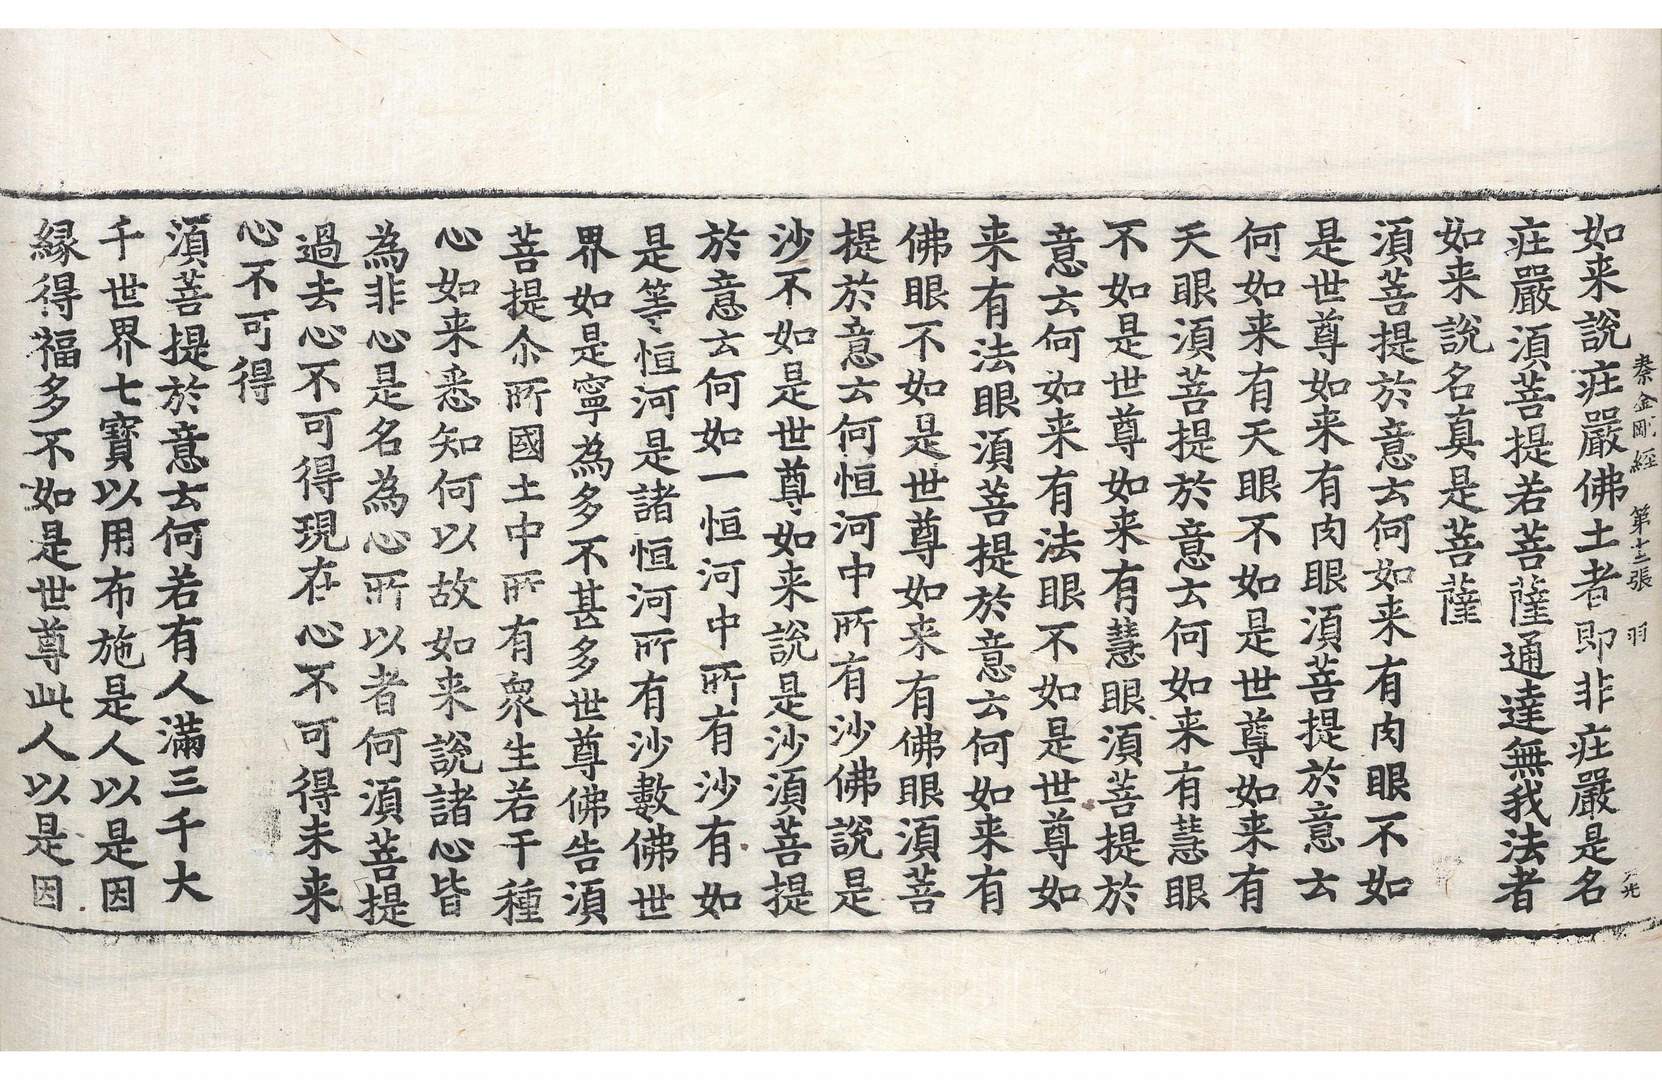 秦金剛經 第十二張 羽
如来說庄嚴佛土者即非庄嚴是名
庄嚴須菩提若菩薩通達無我法者
如来說名真是菩薩
須菩提於意云何如来有肉眼不如
是世尊如来有肉眼須菩提於意云
何如来有天眼不如是世尊如来有
天眼須菩提於意云何如来有慧眼
不如是世尊如来有慧眼須菩提於
意云何如来有法眼不如是世尊如
来有法眼須菩提於意云何如来有
佛眼不如是世尊如来有佛眼須菩
提於意云何恒河中所有沙佛說是
沙不如是世尊如来說是沙須菩提
於意云何如一恒河中所有沙有如
是等恒河是諸恒河所有沙數佛世
界如是寧為多不甚多世尊佛告須
菩提尒所國土中所有衆生若干種
心如来悉知何以故如来說諸心皆
為非心是名為心所以者何須菩提
過去心不可得現在心不可得未来
心不可得
須菩提於意云何若有人滿三千大
千世界七寶以用布施是人以是因
縁得福多不如是世尊此人以是因